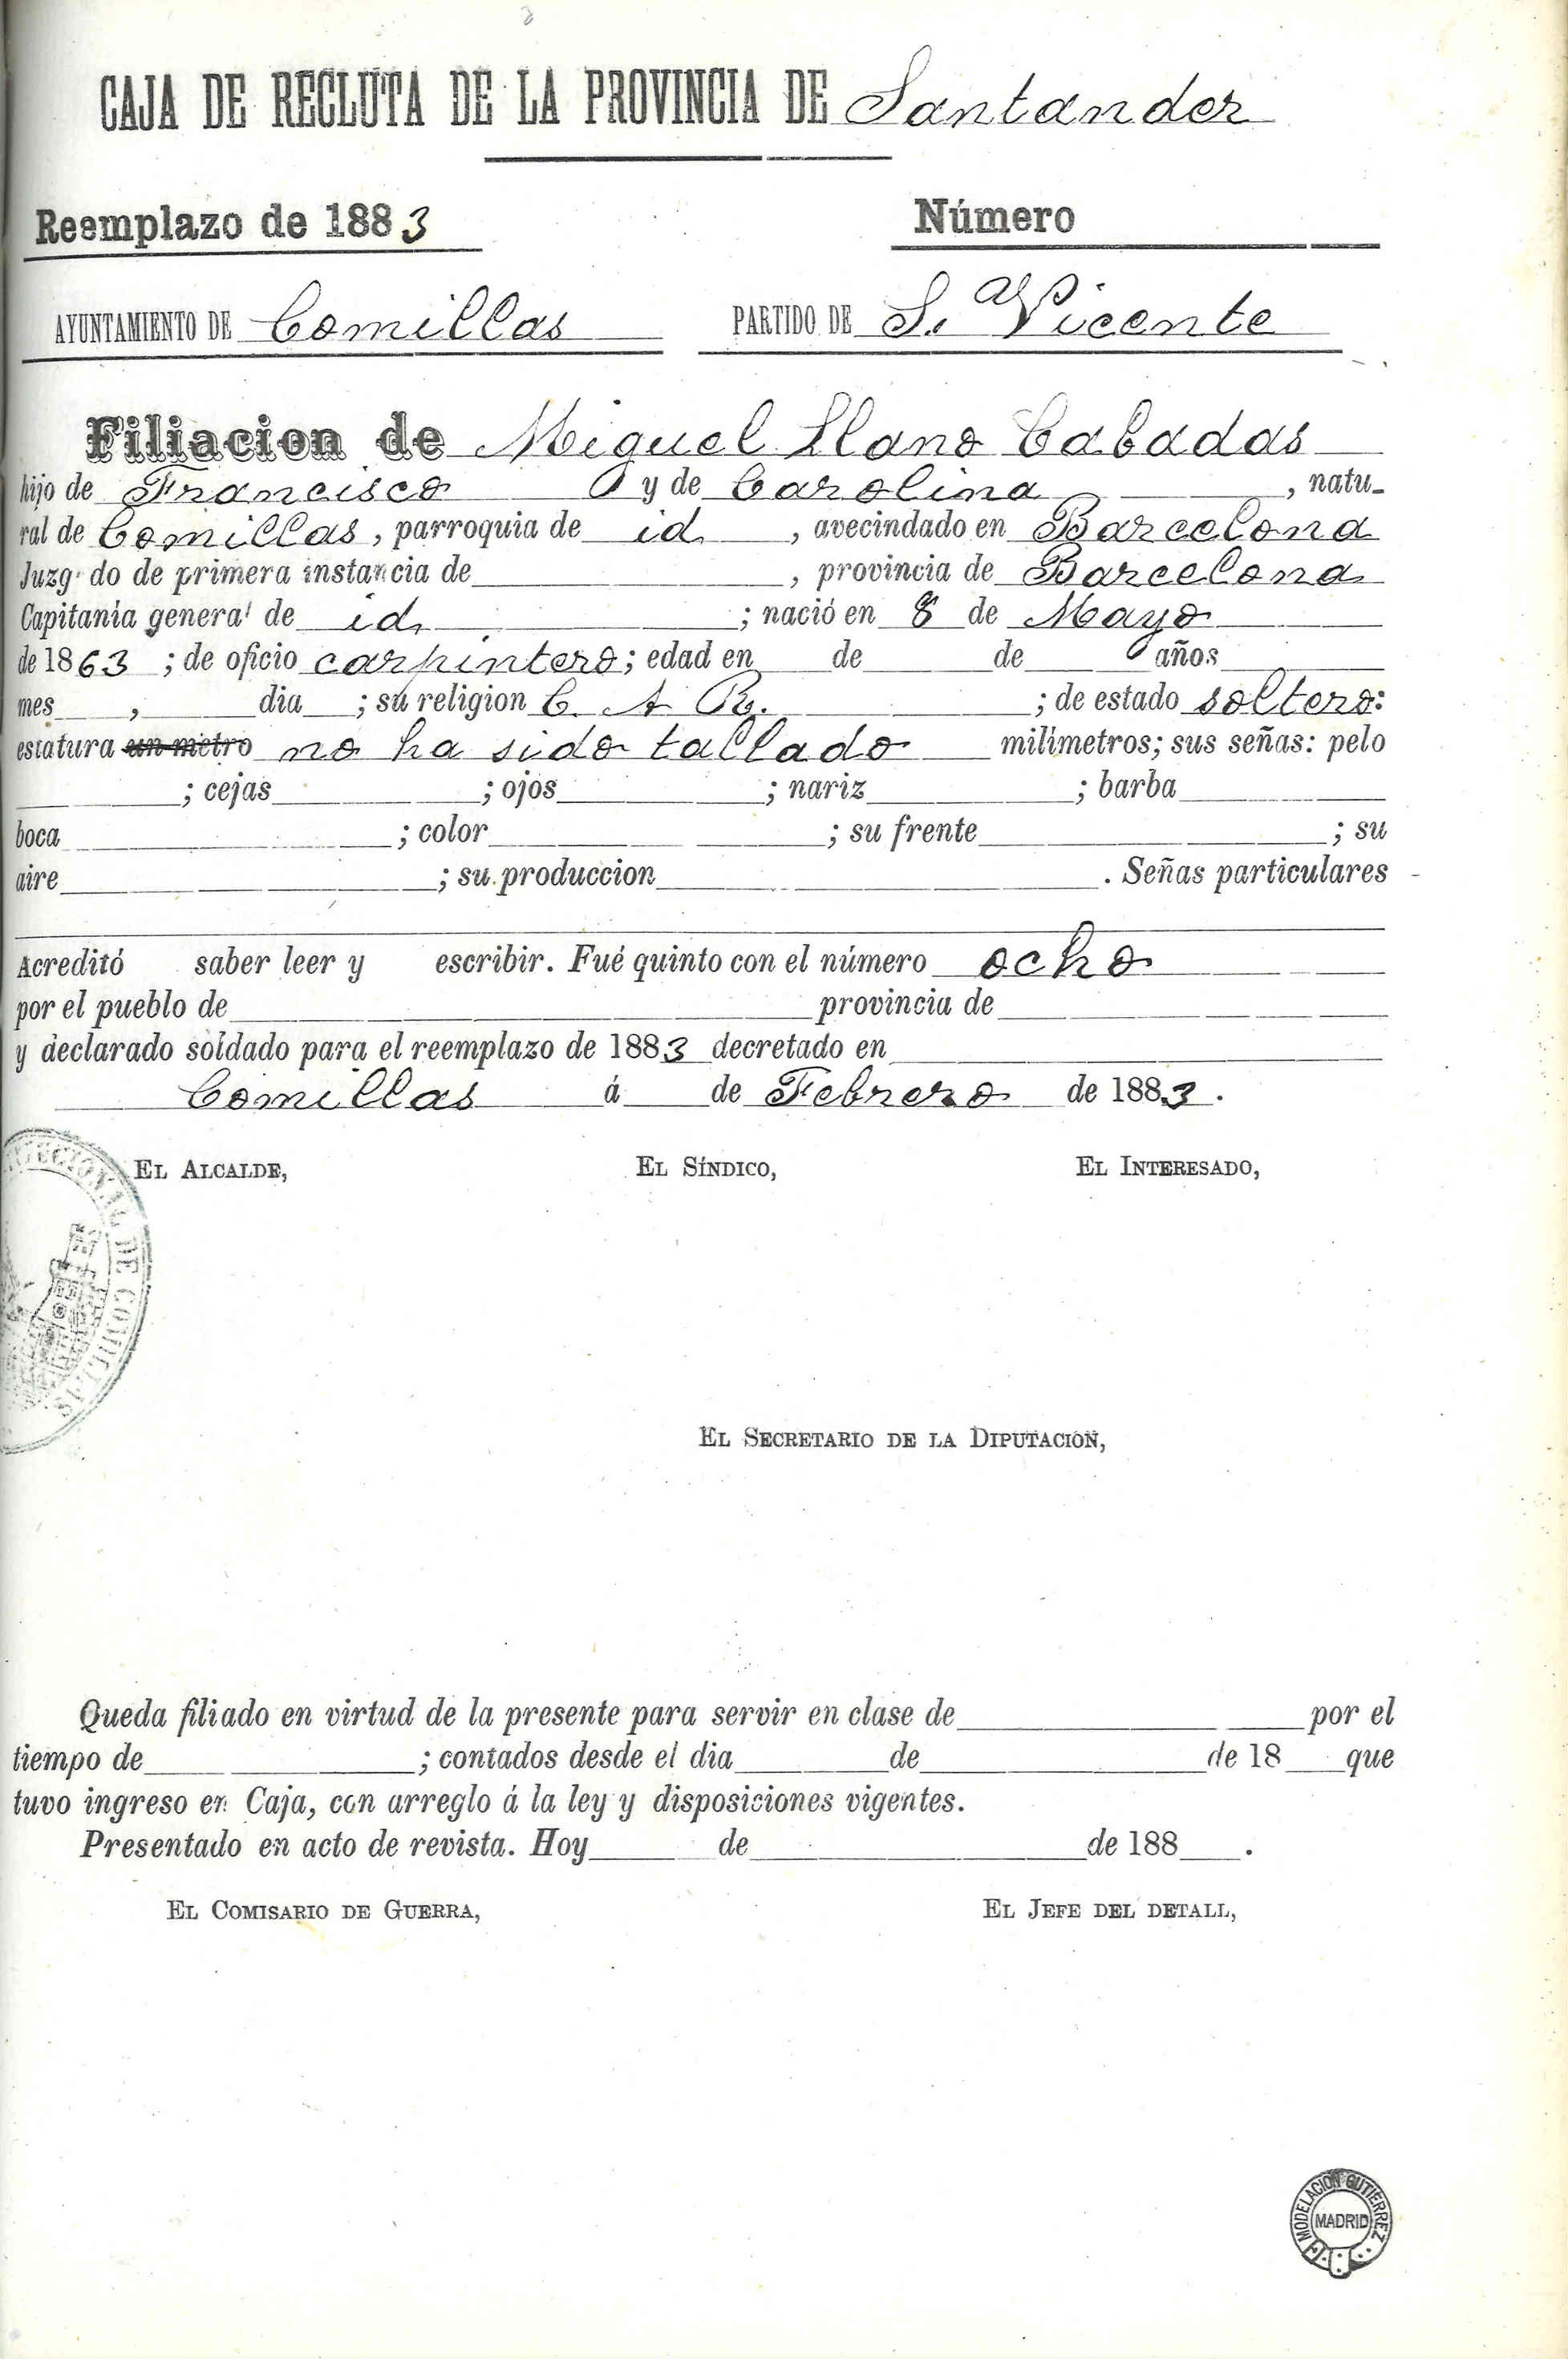 CAJA DE RECLUTA DE LA PROVINCIA DE Santander
Reemplazo de 1883 Número
AYUNTAMIENTO DE Comillas PARTIDO DE S. Vicente
Filiacion de Miguel Llano Cabadas
hijo de Francisco y de Carolina , natu-
ral de Comillas, parroquia de id , avecindado en Barcelona
Juzgado de primera instancia de , provincia de Barcelona
Capitanía general de id ; nació en 8 de Mayo
de 1863 ; de oficio carpintero; edad en de de años
mes , dia ; su religion C. A. R. ; de estado soltero:
estatura un metro no ha sido tallado milímetros; sus señas: pelo
; cejas ; ojos ; nariz ; barba
boca ; color ; su frente ; su
aire ; su produccion . Señas particulares
Acreditó saber leer y escribir. Fué quinto con el número ocho
por el pueblo de provincia de
y declarado soldado para el reemplazo de 1883 decretado en
Comillas á de Febrero de 1883.
EL ALCALDE, EL SÍNDICO, EL INTERESADO,
DE COMILLAS
EL SECRETARIO DE LA DIPUTACIÓN,
Queda filiado en virtud de la presente para servir en clase de por el
tiempo de ; contados desde el dia de de 18 que
tuvo ingreso en Caja, con arreglo á la ley y disposiciones vigentes.
Presentado en acto de revista. Hoy de de 188 .
EL COMISARIO DE GUERRA, EL JEFE DEL DETALL,
MODELACION GUTIERREZ
MADRID